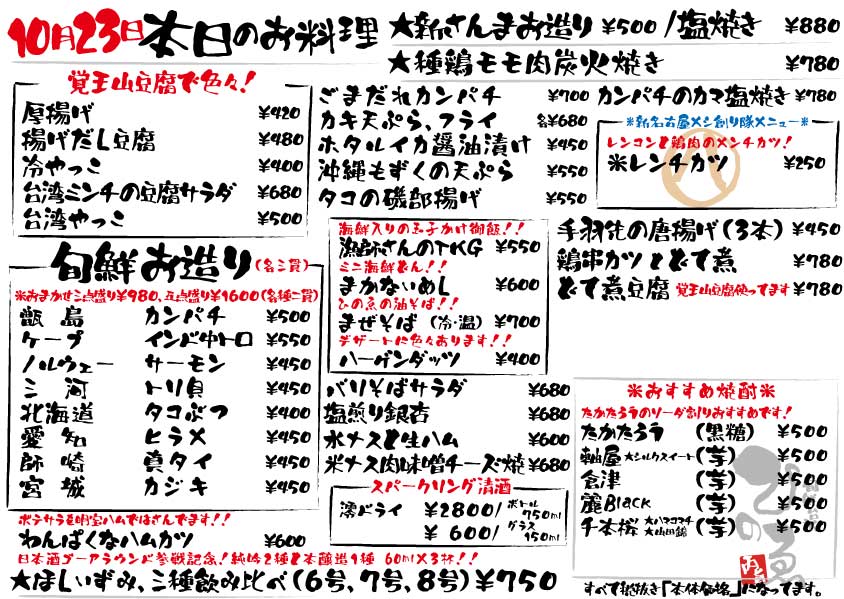 10月23日本日のお料理
★新さんまお造り ¥500/塩焼き ¥880
★種鶏モモ肉炭火焼き ¥780
覚王山豆腐で色々!
厚揚げ ¥420
揚げだし豆腐 ¥480
冷やっこ ¥400
台湾ミンチの豆腐サラダ ¥680
台湾やっこ ¥500
ごまだれカンパチ ¥700
カキ天ぷら、フライ 各¥680
ホタルイカ醤油漬け ¥450
沖縄もずくの天ぷら ¥550
タコの磯部揚げ ¥550
カンパチのカマ塩焼き ¥780
※新名古屋メシ創り隊メニュー※
レンコンと鶏肉のメンチカツ!
米レンチカツ ¥250
旬鮮お造り(各三貫)
※おまかせ三点盛り¥980、五点盛り¥1600(各種二貫)
甑島 カンパチ ¥500
ケープ インド中トロ ¥550
ノルウェー サーモン ¥450
三河 トリ貝 ¥450
北海道 タコぶつ ¥400
愛知 ヒラメ ¥450
師崎 真タイ ¥450
宮城 カジキ ¥450
海鮮入りの玉子かけ御飯!!
漁師さんのTKG ¥550
ミニ海鮮どん!!
まかないめし ¥600
ひの魚の油そば!!
まぜそば (冷・温) ¥700
デザートに色々あります!!
ハーゲンダッツ ¥400
手羽先の唐揚げ(3本) ¥450
鶏串カツとどて煮 ¥780
どて煮豆腐 覚王山豆腐使ってます ¥780
バリそばサラダ ¥680
塩煎り銀杏 ¥680
水ナスと生ハム ¥600
米ナス肉味噌チーズ焼 ¥680
スパークリング清酒
澪ドライ ¥2800/ボトル750ml
¥600/グラス150ml
※おすすめ焼酎※
たかたろうのソーダ割りおすすめです!
たかたろう (黒糖) ¥500
軸屋 ★シルクスイート (芋) ¥500
倉津 (芋) ¥500
麗Black (芋) ¥500
千本桜 ★ハマコマチ ★山田錦 (芋) ¥500
ポテサラを明宝ハムではさんでます!!
わんぱくなハムカツ ¥600
日本酒ゴーアラウンド参戦記念!純吟2種と本醸造1種 60ml×3杯!!
★ほしいずみ、三種飲み比べ(6号、7号、8号)¥750
すべて税抜き「本体価格」になってます。